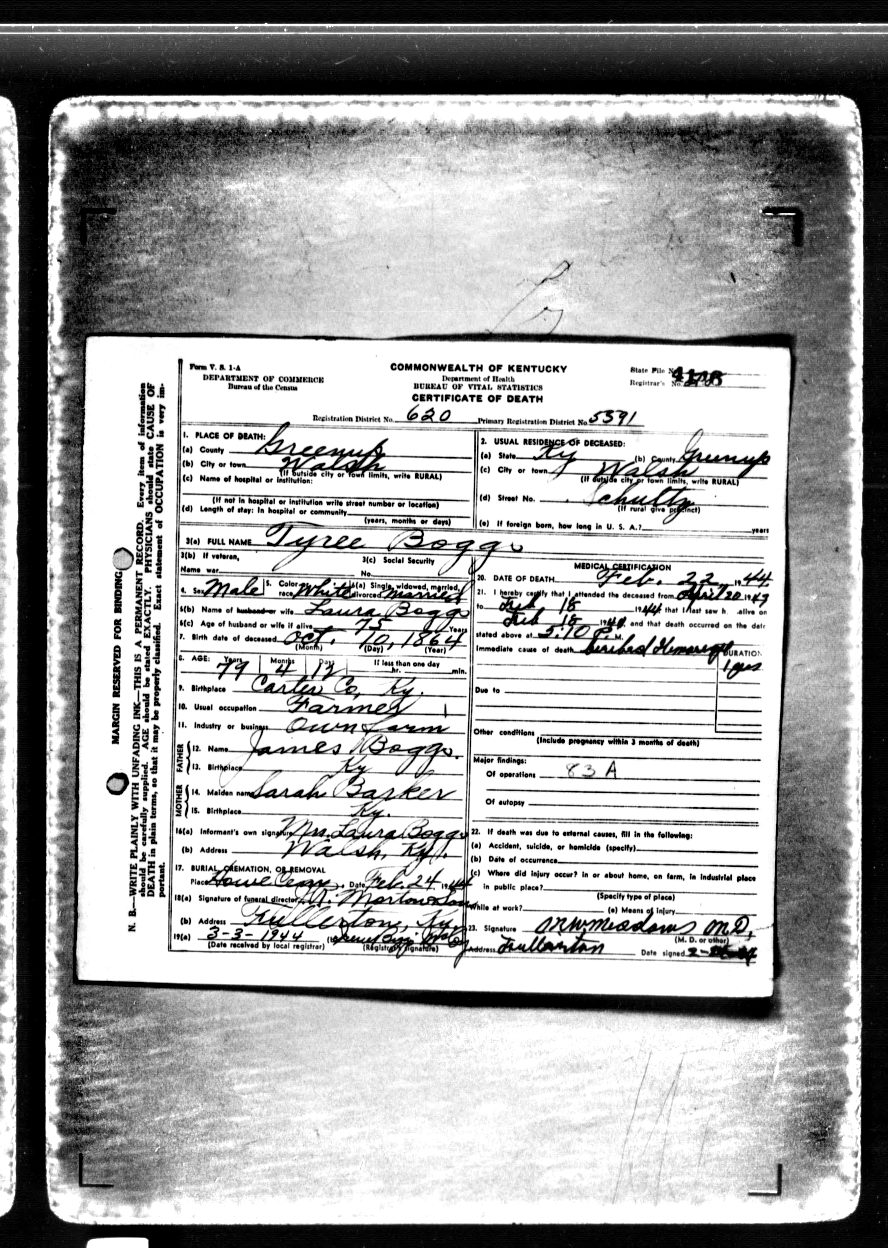 Form V. S. 1-A
DEPARTMENT OF COMMERCE
Bureau of the Census
COMMONWEALTH OF KENTUCKY
Department of Health
BUREAU OF VITAL STATISTICS
CERTIFICATE OF DEATH
State File No.
Registrar's No.
Registration District No. 620 Primary Registration District No. 5391
MARGIN RESERVED FOR BINDING
N. B.—WRITE PLAINLY WITH UNFADING INK—THIS IS A PERMANENT RECORD. Every item of information
should be carefully supplied. AGE should be stated EXACTLY. PHYSICIANS should state CAUSE OF
DEATH in plain terms, so that it may be properly classified. Exact statement of OCCUPATION is very im-
portant.
1. PLACE OF DEATH:
(a) County Greenup
(b) City or town Walsh
(If outside city or town limits, write RURAL)
(c) Name of hospital or institution:
(If not in hospital or institution write street number or location)
(d) Length of stay: In hospital or community
(years, months or days)
2. USUAL RESIDENCE OF DECEASED:
(a) State Ky (b) County Greenup
(c) City or town Walsh
(If outside city or town limits, write RURAL)
(d) Street No. Schultz
(If rural give precinct)
(e) If foreign born, how long in U. S. A.? years
3(a) FULL NAME Tyree Boggs
3(b) If veteran,
Name war
3(c) Social Security
No.
4. Sex Male 5. Color or race White 6(a) Single, widowed, married, divorced married
6(b) Name of husband or wife Laura Boggs
6(c) Age of husband or wife if alive 75 Years
7. Birth date of deceased Oct. 10, 1864
(Month) (Day) (Year)
8. AGE: Years Months Days If less than one day
79 4 12 hr. min.
9. Birthplace Carter Co, Ky.
10. Usual occupation Farmer
11. Industry or business Own Farm
FATHER
12. Name James Boggs.
13. Birthplace Ky
MOTHER
14. Maiden name Sarah Barker
15. Birthplace Ky.
16(a) Informant's own signature Mrs. Laura Boggs
(b) Address Walsh, Ky.
17. BURIAL, CREMATION, OR REMOVAL
Place Howe Cem. Date Feb. 24, 1944
18(a) Signature of funeral director Morton & Son
(b) Address Fullerton, Ky.
19(a) 3-3-1944 (b)
(Date received by local registrar) (Registrar's signature)
MEDICAL CERTIFICATION
20. DATE OF DEATH Feb. 22, 1944
21. I hereby certify that I attended the deceased from April 20, 1943
to Feb 18 1944 that I last saw h alive on
Feb 18 1944 and that death occurred on the date
stated above at 5:10 P. M.
Immediate cause of death Cerebral Hemorage DURATION
1 yrs
Due to
Other conditions
(Include pregnancy within 3 months of death)
Major findings:
Of operations 83 A
Of autopsy
22. If death was due to external causes, fill in the following:
(a) Accident, suicide, or homicide (specify)
(b) Date of occurrence
(c) Where did injury occur? in or about home, on farm, in industrial place
in public place?
(Specify type of place)
While at work? (e) Means of injury
23. Signature M W Meadows M.D.
(M. D. or other)
Address Fullerton Date signed